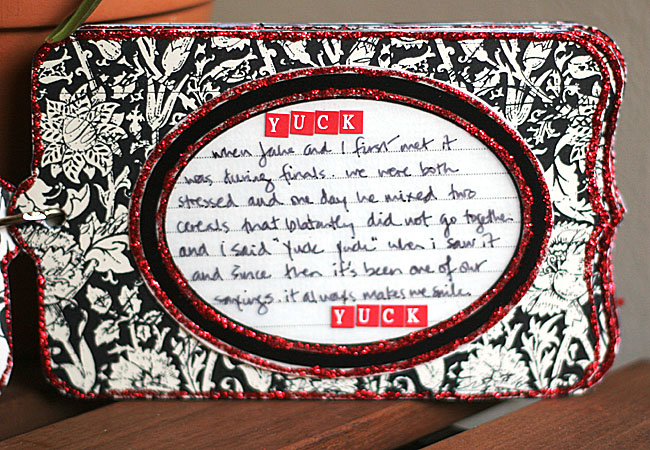 YUCK
when Jake and I first met it
was during finals. we were both
stressed and one day he mixed two
cereals that blatantly did not go together
and i said "Yuck yuck" when i saw it
and since then it's been one of our
sayings. it always makes me smile.
YUCK